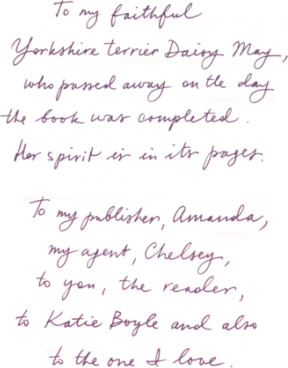 To my faithful
Yorkshire terrier Daisy May,
who passed away on the day
the book was completed.
Her spirit is in its pages.
To my publisher, Amanda,
my agent, Chelsey,
to you, the reader,
to Katie Boyle and also
to the one I love.